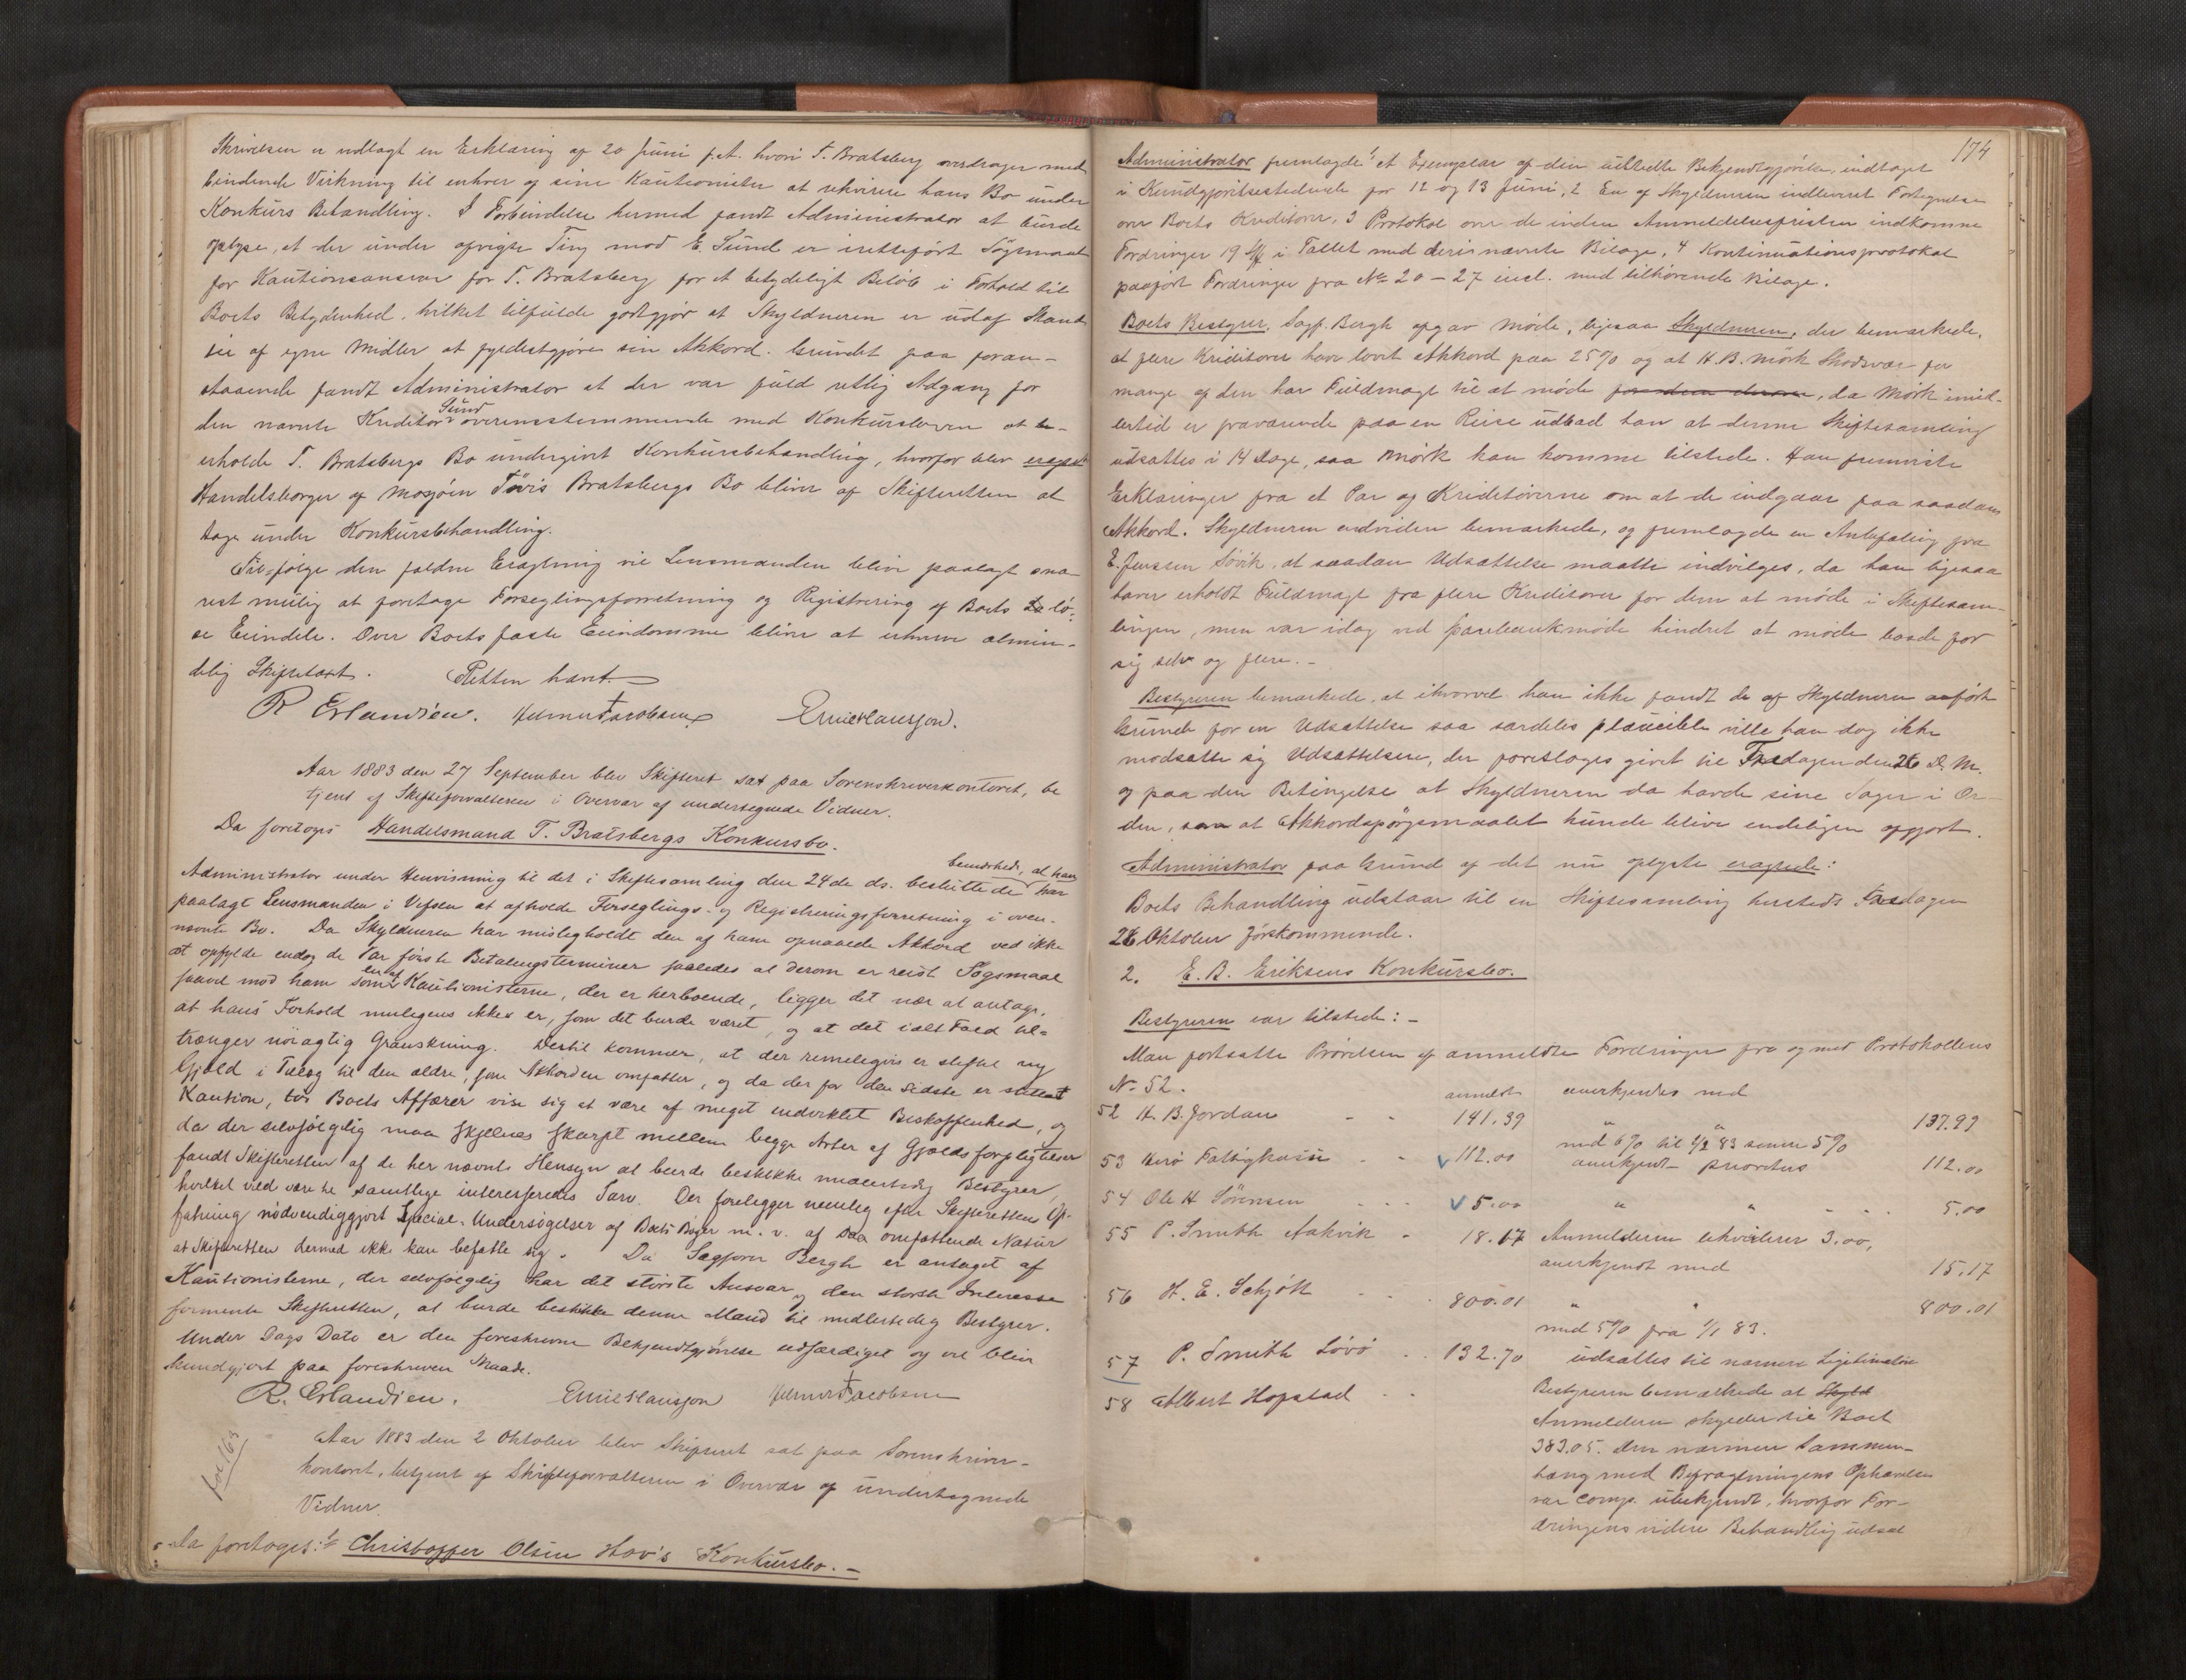 Skrivelsen er vedlagt en Erklæring af 20 Juni f.A. hvori T. Bratsberg overdrager med
bindende Virkning til enhver af sine Kautionister at rekvirere hans Bo under
Konkurs Behandling. I Forbindelse hermed fandt Administrator at burde
oplyse, at der under afvigte Ting mod E. Sund er iretteført Søgsmaal
for Kautionsansvar for T. Bratsberg for et betydeligt Beløb i Forhold til
Boets Betydenhed, hvilket tilfulde godtgjør at Skyldneren er udaf Stand
til af egne Midler at fyldestgjøre sin Akkord. Grundet paa foran-
staaende fandt Administrator at der var fuld retlig Adgang for
den nævnte Kreditor Sund overensstemmende med Konkursloven at be-
erholde T. Bratsbergs Bo undergivet Konkursbehandling, hvorfor blev eragtet
Handelsborger af Mosjøen Tøvis Bratsbergs Bo bliver af Skifteretten at
tage under Konkursbehandling.
Tilfølge den faldne Eragtning vil Lensmanden blive paalagt sna-
rest mulig at foretage Forseglingsforretning og Registrering af Boets lø-
se Eiendele. Over Boets faste Eiendomme bliver at erhverve almin-
delig Skiftetaxt. Retten hævet.
R Erlandsen. Helmer Jacobsen Emil Hansson.
Aar 1883 den 27 September blev Skifteret sat paa Sorenskriverkontoret, be
tjent af Skifteforvalteren i Overvær af undertegnede Vidner.
Da foretoges Handelsmand T. Bratsbergs Konkursbo.
Administrator under Henvisning til det i Skiftesamling den 24de ds. besluttede bemærkede, at han har
paalagt Lensmanden i Vefsen at afholde Forseglings- og Registreringsforretning i oven-
nævnte Bo. Da Skyldneren har misligholdt den af ham opnaaede Akkord ved ikke
at opfylde endog de Par første Betalingsterminer saaledes at derom er reist Søgsmaal
saavel mod ham som en af Kautionisterne, der er herboende, ligger det nær at antage,
at hans Forhold muligens ikke er, som det burde været, og at det ialtfald til-
trænger nøiagtig Granskning. Dertil kommer, at der rimeligvis er stiftet ny
Gjæld i Tillæg til den ældre, som Akkorden omfatter, og da der for den sidste er stillet
Kaution, tør Boets Affærer vise sig at være af meget indviklet Beskaffenhed, og
da der selvfølgelig maa skjelnes skarpt mellem begge Arter af Gjældsforpligtelser
fandt Skifteretten af de her nævnte Hensyn at burde beskikke midlertidig Bestyrer,
hvilket vil være til samtlige interesseredes Tarv. Der foreligger nemlig efter Skifterettens Op-
fatning nødvendiggjort Special-Undersøgelser af Boets Bøger m.v. af saa omfattende Natur
at Skifteretten dermed ikke kan befatte sig. Da Sagfører Bergh er antaget af
Kautionisterne, der selvfølgelig har det største Ansvar og den største Interesse
formente Skifteretten, at burde beskikke denne Mand til midlertidig Bestyrer.
Under Dags Dato er den foreskrevne Bekjendtgjørelse udfærdiget og vil blive
kundgjort paa foreskreven Maade.
R. Erlandsen. Emil Hansson Helmer Jacobsen
fol 163
Aar 1883 den 2 Oktober blev Skifteret sat paa Sorenskriver-
kontoret, betjent af Skifteforvalteren i Overvær af undertegnede
Vidner.
Da foretoges: 1 Christoffer Olsen Hov's Konkursbo. -
174
Administrator fremlagde 1 et Exemplar af den udstedte Bekjendtgjørelse, indtaget
i Kundgjørelsestidende for 12 og 13 Juni, 2 En af Skyldneren indleveret Fortegnelse
over Boets Kreditorer, 3 Protokol over de inden Anmeldelsesfristen indkomne
Fordringer 19 Stk i Tallet med deri nævnte Bilage, 4 Kontinuationsprotokol
paaført Fordringer fra No 20 - 27 incl. med tilhørende Bilage.
Boets Bestyrer, Sagf. Bergh opgav Møde, ligesaa Skyldneren, der bemærkede,
at flere Kreditorer have lovet Akkord paa 25% og at H.B. Mørk Skodsvær for
mange af dem har Fuldmagt til at møde for dem , da Mørk imid-
lertid er fraværende paa en Reise udbad han at denne Skiftesamling
udsattes i 14 Dage, saa Mørk kan komme tilstede. Han fremviste
Erklæringer fra et Par af Kreditorerne om at de indgaar paa saadan
Akkord. Skyldneren endvidere bemærkede, og fremlagde en Anbefaling fra
E. Jenssen Søvik, at saadan Udsættelse maatte indvilges, da han ligesaa
haver erholdt Fuldmagt fra flere Kreditorer for dem at møde i Skiftesam-
lingen, men var idag ved Sparebankmøde hindret at møde baade for
sig selv og flere. -
Bestyreren bemærkede, at ihvorvel han ikke fandt de af Skyldneren anførte
Grunde for en Udsættelse saa særdeles plausible ville han dog ikke
modsætte sig Udsættelsen, der foresloges givet til Fredagen den 26 D.M.
og paa den Betingelse at Skyldneren da havde sine Sager i Or-
den, saa at Akkordspørgsmaalet kunde blive endeligen afgjort.
Administrator paa Grund af det nu oplyste eragtede:
Boets Behandling udstaar til en Skiftesamling hersteds Fredagen
26 Oktober førstkommende.
2. E. B. Eriksens Konkursbo.
Bestyreren var tilstede: -
Man fortsatte Prøvelsen af anmeldte Fordringer fra og med Protokollens
No 52. anmeldt anerkjendes med
52 H. B. Jordan - - 141.39 " " 137.99
med 6% til 1/2 83 senere 5%
53 Herø Fattigkasse - - 112.00 anerkjendt prioritets 112.00
54 Ole H Sørensen - - - 5.00 " " - - - 5.00
55 P. Smith Aakvik - 18.17 Anmelderen likviderer 3.00,
anerkjendt med 15.17
56 H. E. Schjøtt - - - 800.01 " " 800.01
med 5% fra 1/1 83.
57 P. Smith Løvø - - 132.70 udsættes til nærmere Legitimation
58 Albert Hopstad - - Bestyreren bemærkede at Skyld
Anmelderen skylder til Boet
383.05. Den nærmere Sammen-
hæng med Befragtningens Ophævelse
var Comp. ubekjendt, hvorfor For-
dringens videre Behandling udsat